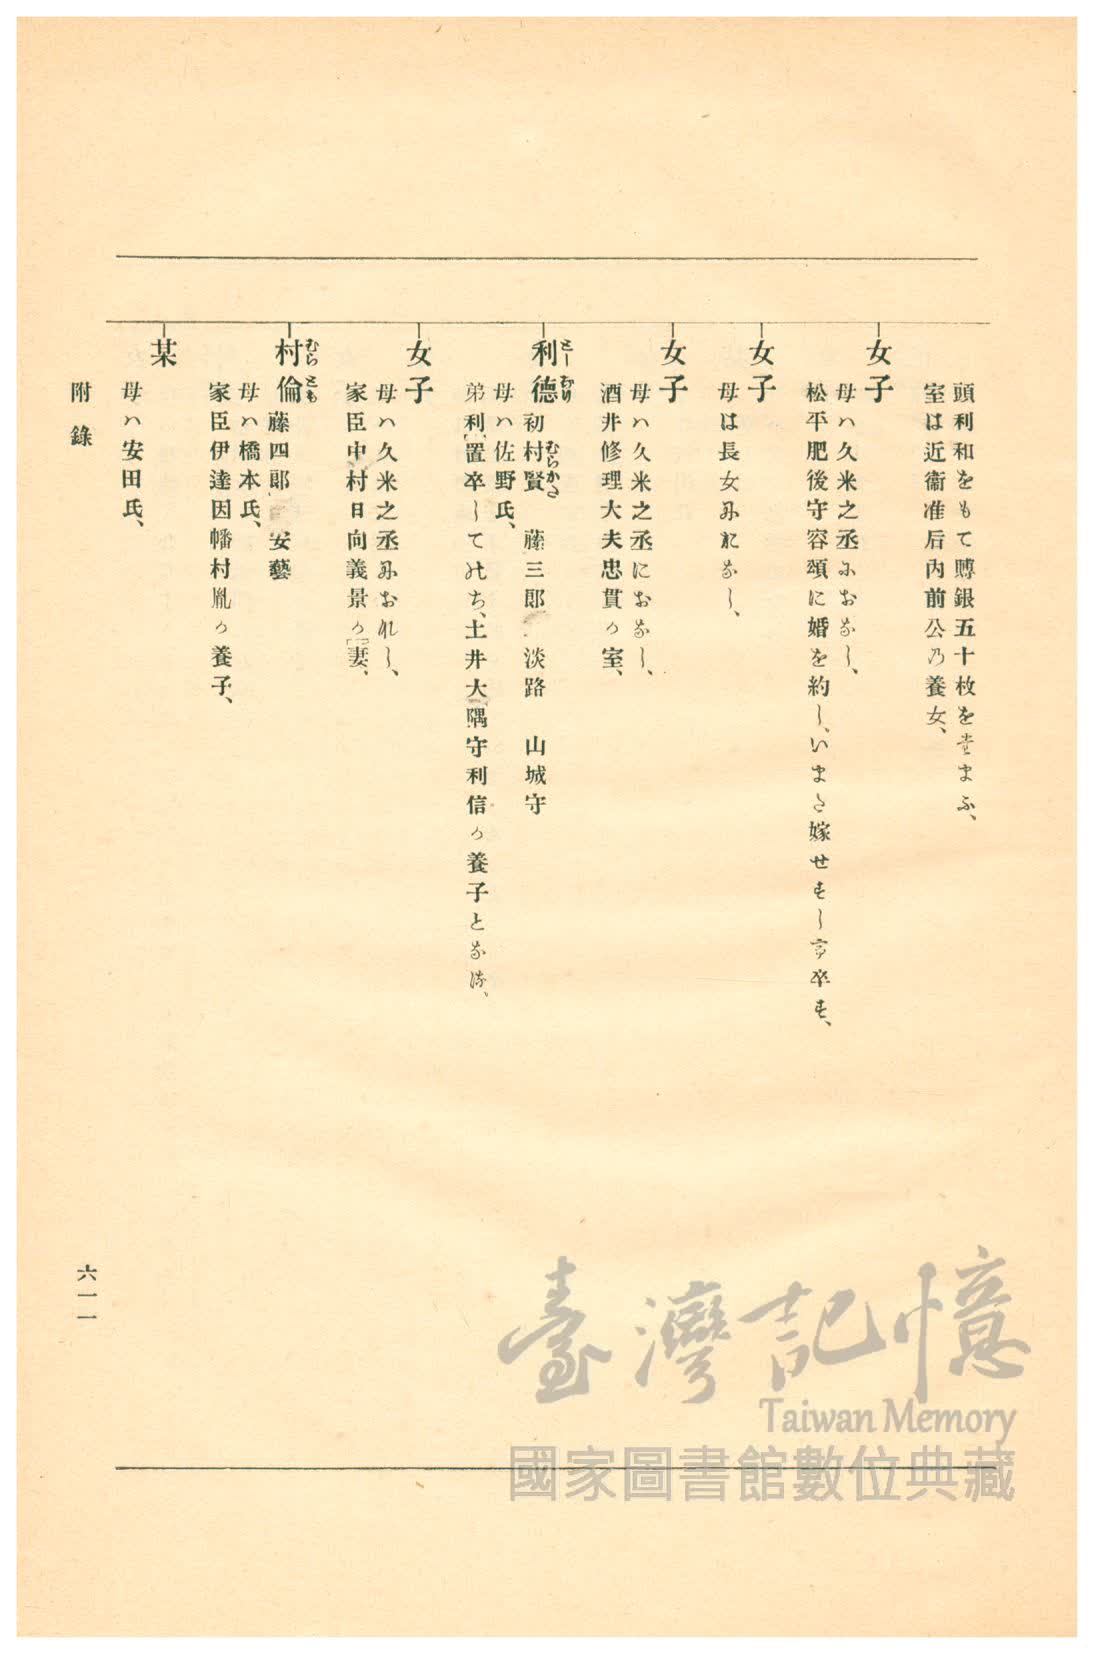 頭利和をもて賻銀五十枚をたまふ、
室は近衞准后内前公の養女、
女子
母ハ久米之丞におなし、
松平肥後守容頌に婚を約し、いまた嫁せすして卒す、
女子
母は長女におなし、
女子
母ハ久米之丞におなし、
酒井修理大夫忠貫か室、
利德 初村賢 藤三郎 淡路 山城守
むらかた
母ハ佐野氏、
弟利置卒してのち、土井大隅守利信か養子となる、
女子
母ハ久米之丞におなし、
家臣中村日向義景か妻、
村倫 藤四郎 安藝
むらとも
母ハ橋本氏、
家臣伊達因幡村胤か養子、
某
母ハ安田氏、
附錄
六一一
臺灣記憶
Taiwan Memory
國家圖書館數位典藏